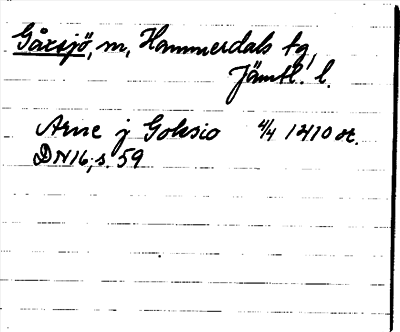 Gåxsjö, m, Hammerdals tg,
Jämtl. l.
Arne j Goksio 4/4 1410 or.
DN16, s. 59